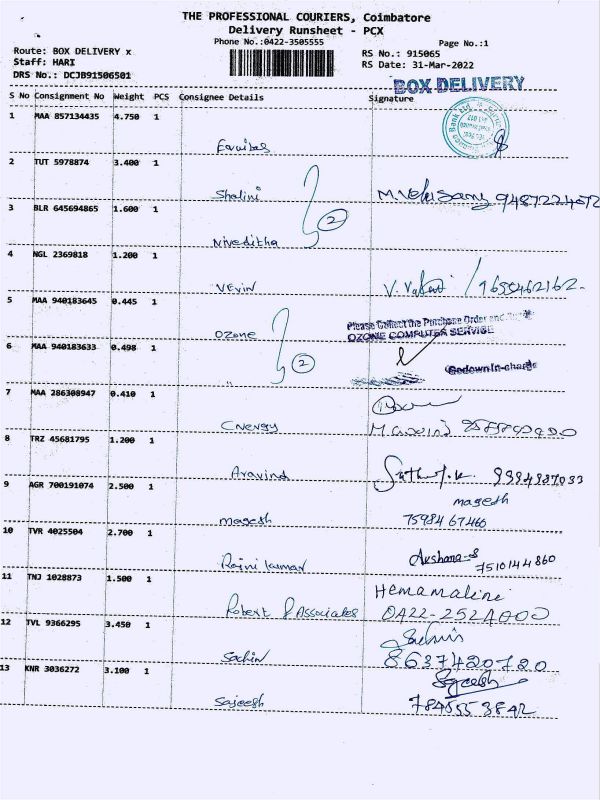 THE PROFESSIONAL COURIERS, Coimbatore
Delivery Runsheet - PCX
Phone No.:0422-3505555
Page No.:1
Route: BOX DELIVERY x
Staff: HARI
DRS No.: DCJB91506501
RS No.: 915065
RS Date: 31-Mar-2022
BOX DELIVERY
S No Consignment No Weight PCS Consignee Details Signature
1 MAA 857134435 4.750 1
2 TUT 5978874 3.400 1
Shalini 9487224672
3 BLR 645694865 1.600 1
2
Niveditha
4 NGL 2369818 1.200 1
Vevin 9655462162
5 MAA 940183645 0.445 1
Please Collect the Purchase Order and
Ozone OZONE COMPUTER SERVICE
6 MAA 940183633 0.498 1
2 Godown In-charge
7 MAA 286308947 0.410 1
Cnergy
8 TRZ 45681795 1.200 1
Aravind 9994987033
9 AGR 700191074 2.500 1
magesh
magesh 75984 67466
10 TVR 4025504 2.700 1
Rajni kumar 7510144860
11 TNJ 1028873 1.500 1
Hemamaline
Robert & Associates 0422-2524000
12 TVL 9366295 3.450 1
Sachin
Sachin 8637420720
13 KNR 3036272 3.100 1
Sajeesh
Sajeesh 7845553842